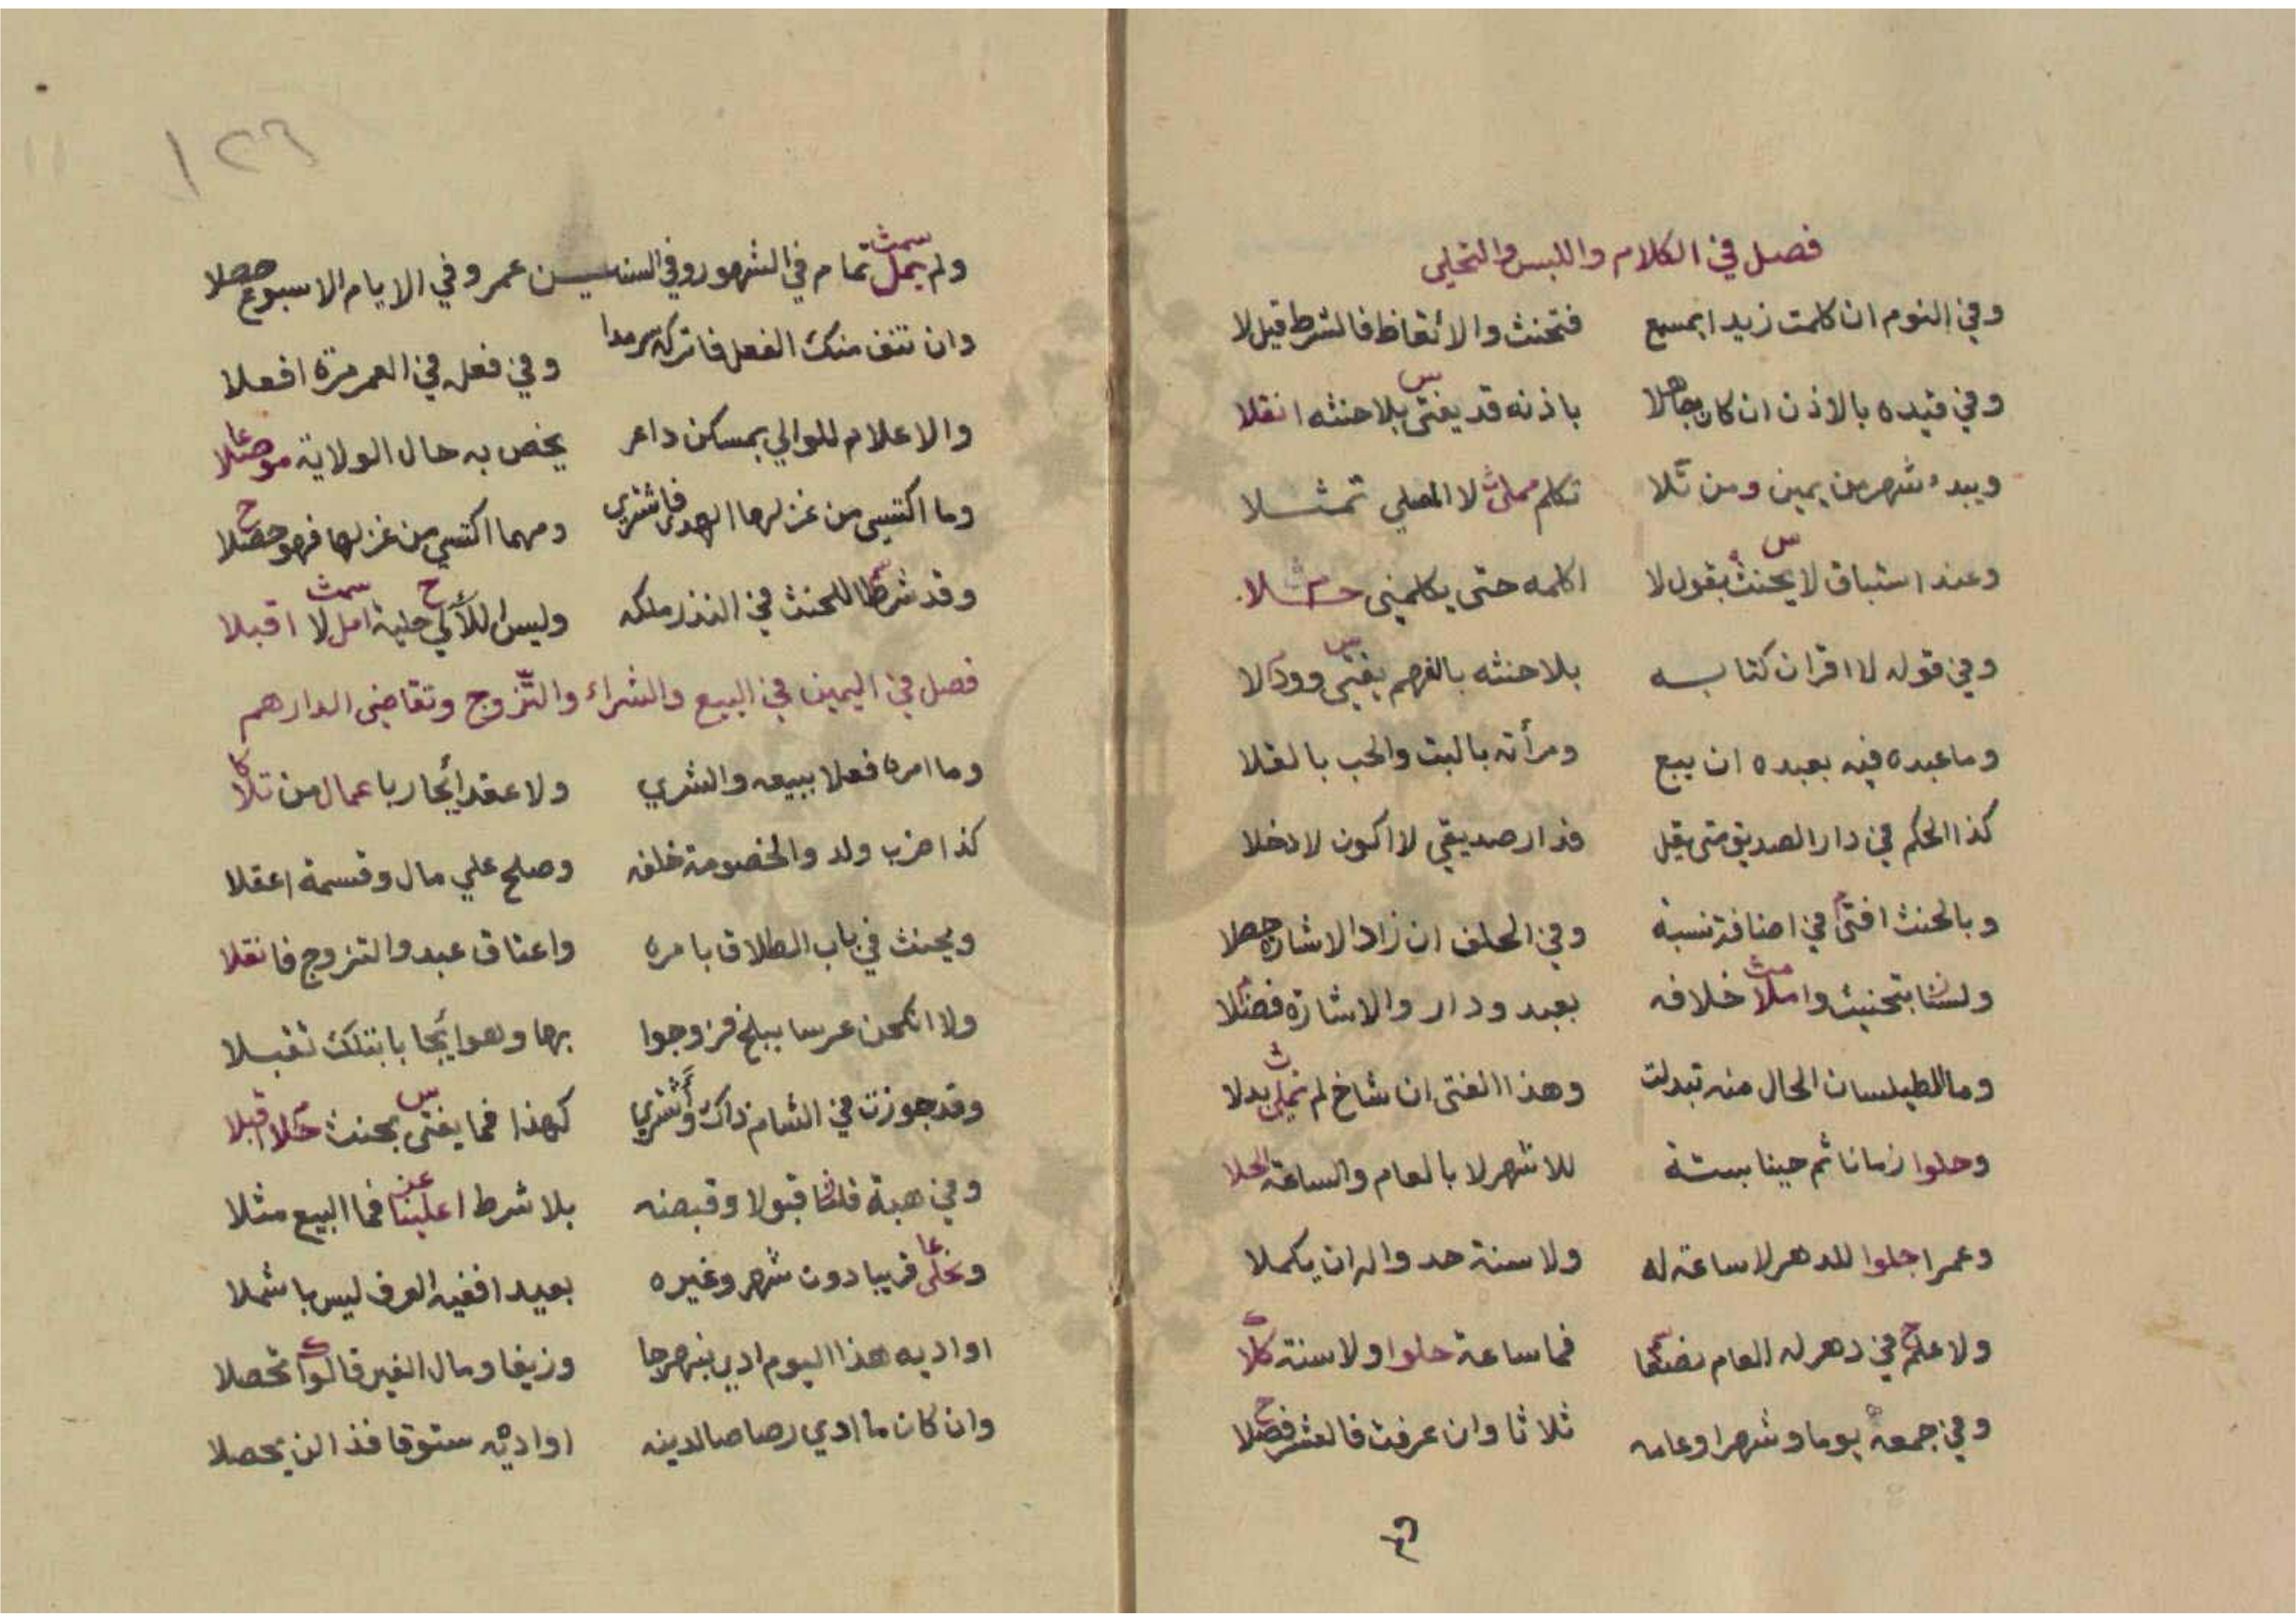 فصل في الكلام واللبس والتحلي
وفي النوم ان كلمت زيدا بمسمع فتحنث والايقاظ فالشرط قيل لا
وفي قيده بالاذن ان كان جاهلا باذنه قد يفتى بلا حنثه انقلا
ويبدء شهر من يمين ومن تلا تكلم لا المصلي تمثلا
وعند استباق لا يحنث بقول لا اكلمه حتى يكلمني
وفي قوله لا اقرأن كتابه بلا حنثه بالفهم يفتى
وما عبده فيه بعبده ان يبع ومرأته بالبت والحب بالقلا
كذا الحكم في دار الصديق متى يقل فدار صديقي لا اكون لادخلا
وبالحنث افتى في اضافة نسبة وفي الحلف ان زاد الاشارة حصلا
ولسنا بتحنيث واملا خلافه بعبد ودار والاشارة فضلا
وما للطيلسان الحال منه تبدلت وهذا الفتى ان شاخ لم بدلا
وحلوا زمانا ثم حينا بستة للاشهر لا بالعام والساعة
وعمرا جلوا للدهر لا ساعة له ولا سنة حد واله ان يكملا
ولا علم في دهر له العام فما ساعة حلوا ولا سنة كلا
وفي جمعة يوما وشهرا وعامه ثلاثا وان عرفت فالعشر فصلا
ولم يمل تمام في الشهور وفي السنين عمر وفي الايام الاسبوع حصلا
وان تنف منك الفعل فاتركه سرمدا وفي فعل في العمر مرة افعلا
والاعلام للوالي بمسكن داعر يخص به حال الولاية
وما اكتسي من غزلها الهد فاشتري ومهما اكتسي من غزلها فهو حصلا
وقد شرطا للحنث في النذر ملكه وليس اللآلي حلية امل لا اقبلا
فصل في اليمين في البيع والشراء والتزوج وتقاضى الدارهم
وما امره فعلا ببيعه والشري ولا عقد ايجار باعمال من تلا
كذا ضرب ولد والخصومة خلفه وصلح علي مال وقسمة اعقلا
ويحنث في باب الطلاق بامره واعتاق عبد والتزوج فانقلا
ولا انكحن عرسا ببلخ فزوجوا بها وهو ايجابا بتلك تقبلا
وقد جوزت في الشام ذاك واشتري كهذا فما يفتى بحنث اقبلا
وفي هبة قلنا قبولا وقبضه بلا شرط فما البيع مثلا
قريبا دون شهر وغيره بعيدا ففيه العرف ليس باشملا
اواديه هذا اليوم ادي بنهرجا وزيفا ومال الغير قالوا تحصلا
وان كان ما ادي رصاصا لدينه اواديه ستوقا فذا لن يحصلا
١٢٦